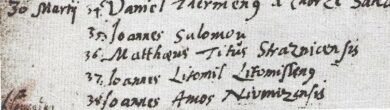 30 Martij 34. Daniel
35. Ioannes Salomon
36. Matthaeus Titus Straznicensis
37. Ioannes Litomil Litomisslenus
38. Ioannes Amos Nivnizensis